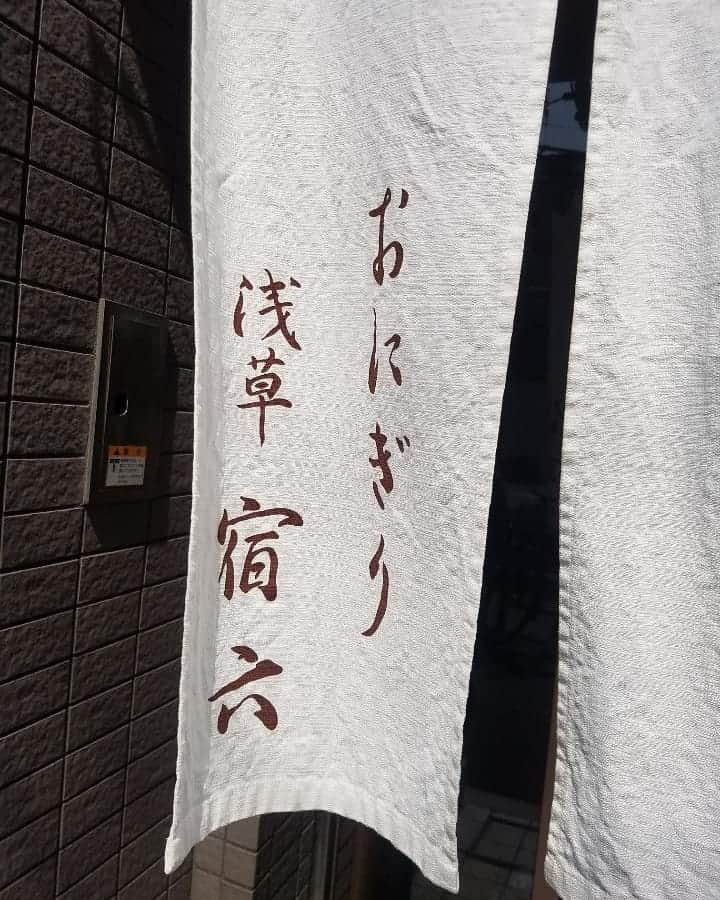 おにぎり
浅草 宿六